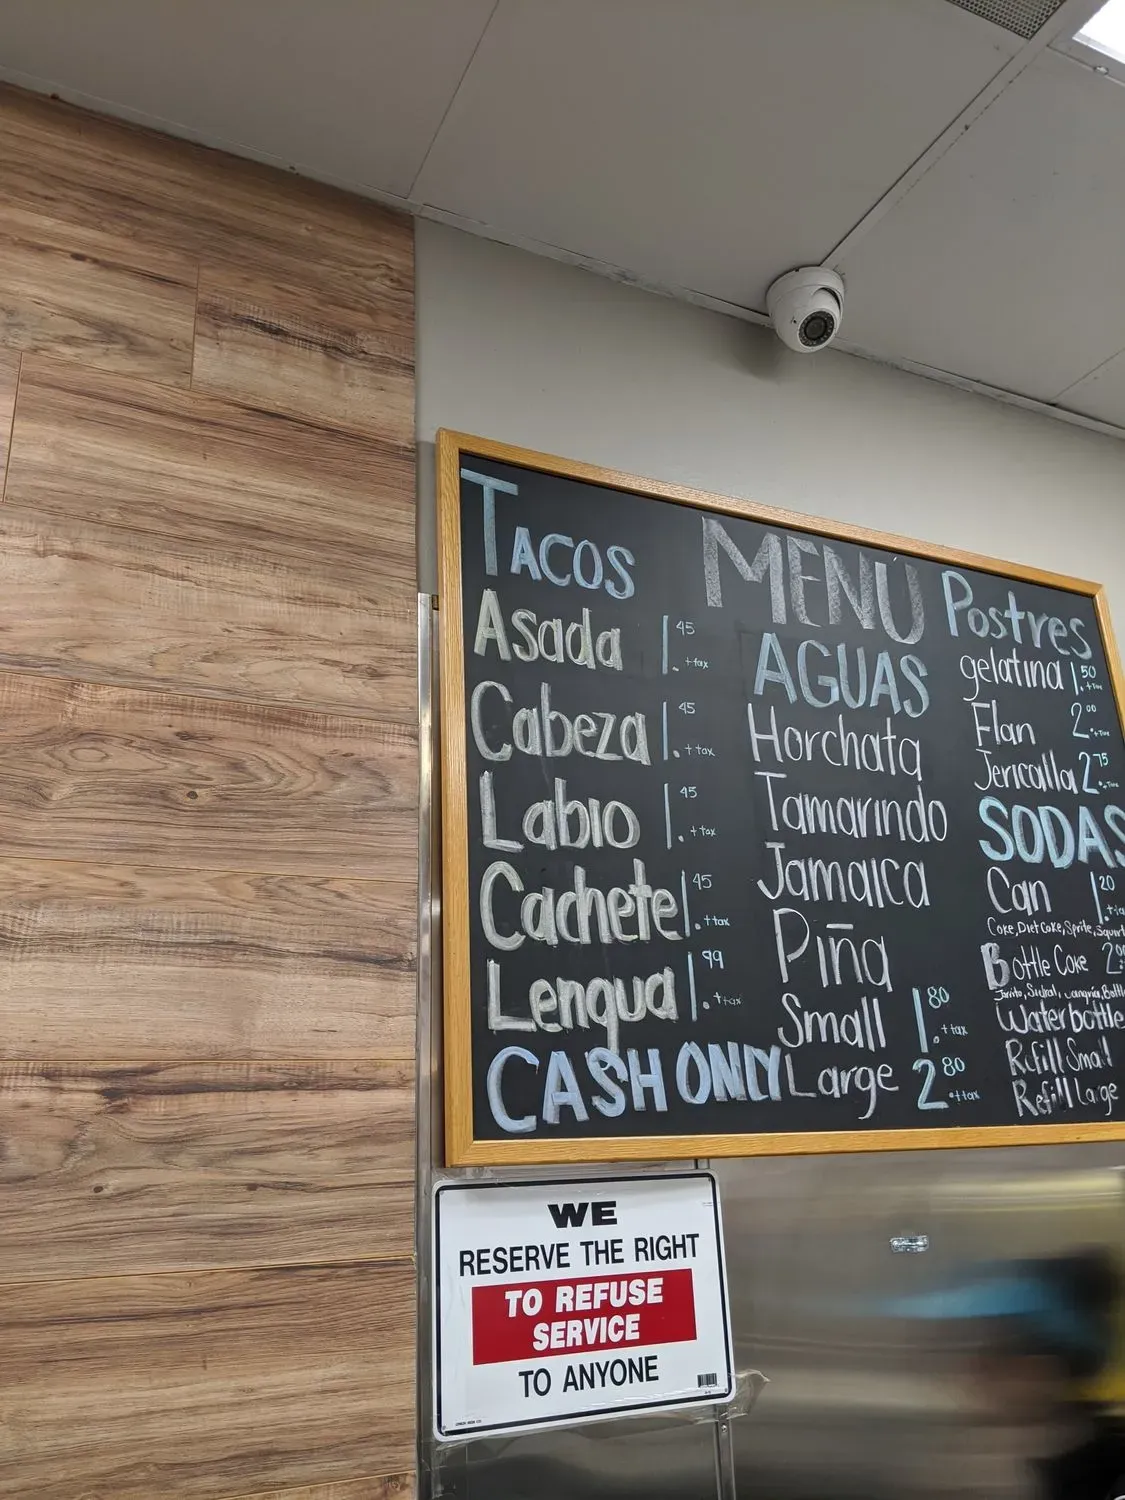 MENÚ
TACOS
Asada 1.45 +tax
Cabeza 1.45 +tax
Labio 1.45 +tax
Cachete 1.45 +tax
Lengua 1.99 +tax
CASH ONLY
AGUAS
Horchata
Tamarindo
Jamaica
Piña
Small 1.80 +tax
Large 2.80 +tax
Postres
gelatina 1.50 +Tax
Flan 2.00 +Tax
Jericalla 2.75 +Tax
SODAS
Can 1.20 +tax
Coke, Diet Coke, Sprite, Squirt
Bottle Coke 2.00
Waterbottle
Refill Small
Refill Large
WE
RESERVE THE RIGHT
TO REFUSE
SERVICE
TO ANYONE